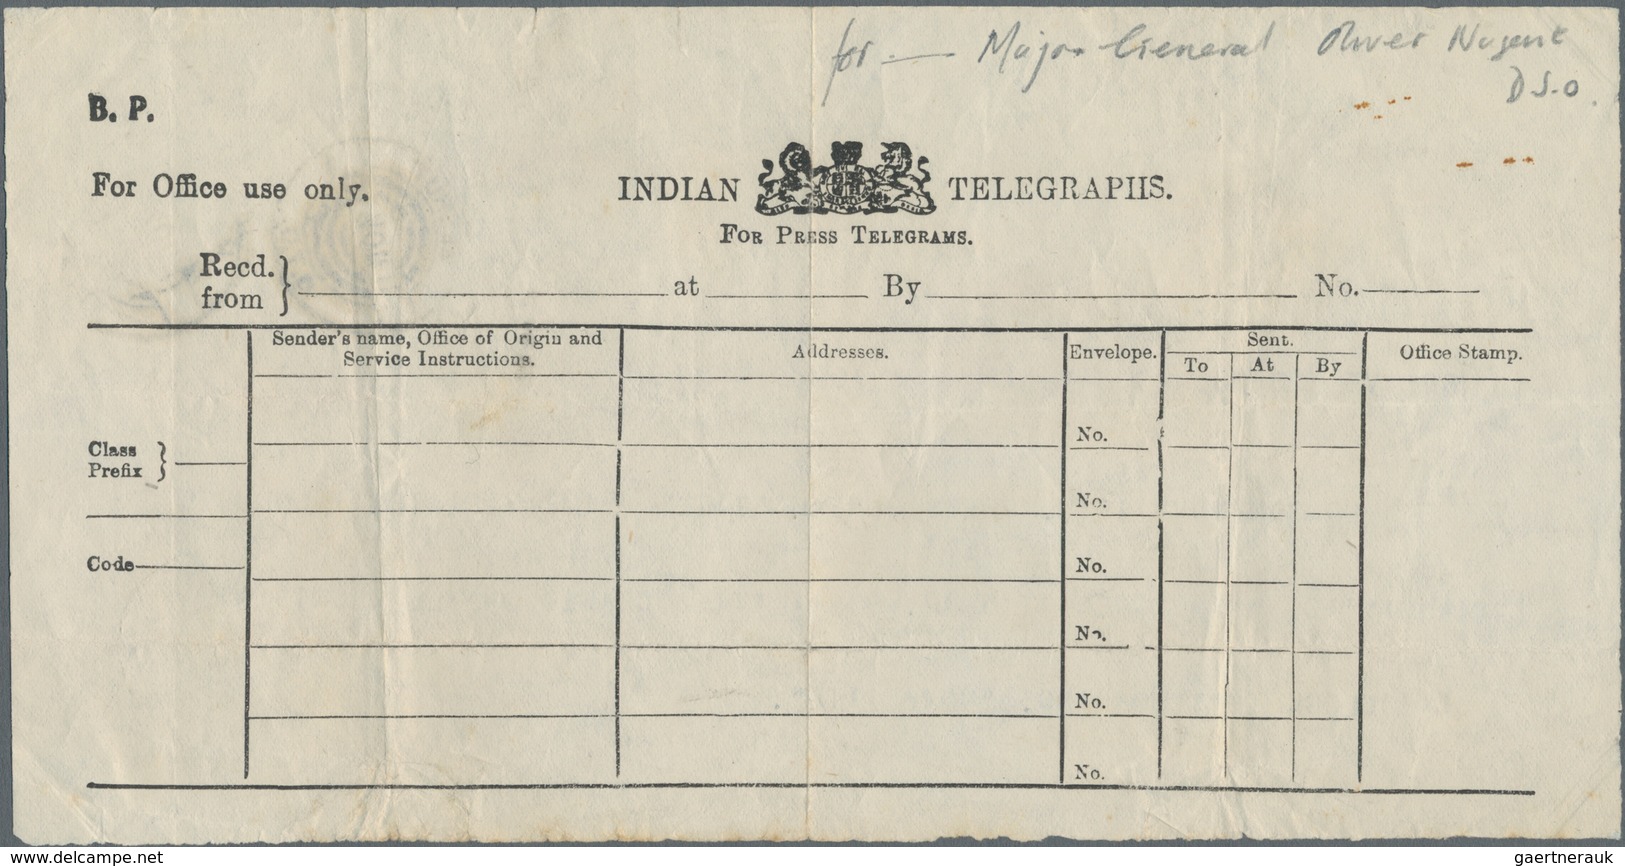 for — Major General Oliver Nugent
D.S.O.
B. P.
For Office use only.
INDIAN TELEGRAPHS.
FOR PRESS TELEGRAMS.
Recd. from } at By No.
Sender's name, Office of Origin and Service Instructions.
Addresses.
Envelope.
Sent.
To At By
Office Stamp.
No.
Class Prefix }
No.
Code
No.
No.
No.
No.
www.delcampe.net
gaertnerauk